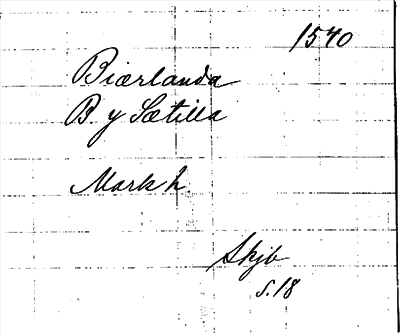 1540
Biærlanda
B. y Sætilla
Mark h
Skjb
s. 18